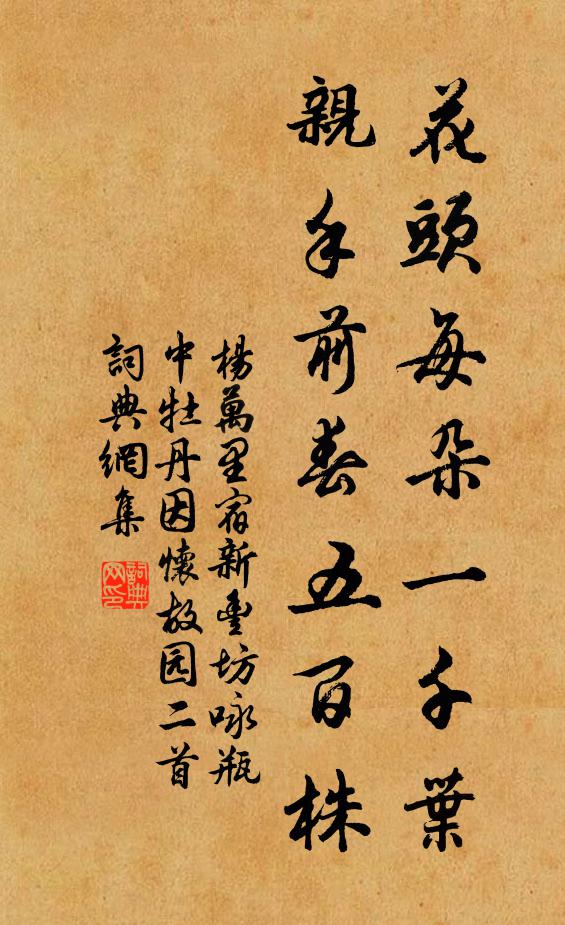 花頭每朶一千葉
親手前春五百株
楊萬里宿新豐坊咏瓶
中牡丹因懷故园二首
詞典網集
詞典
网印